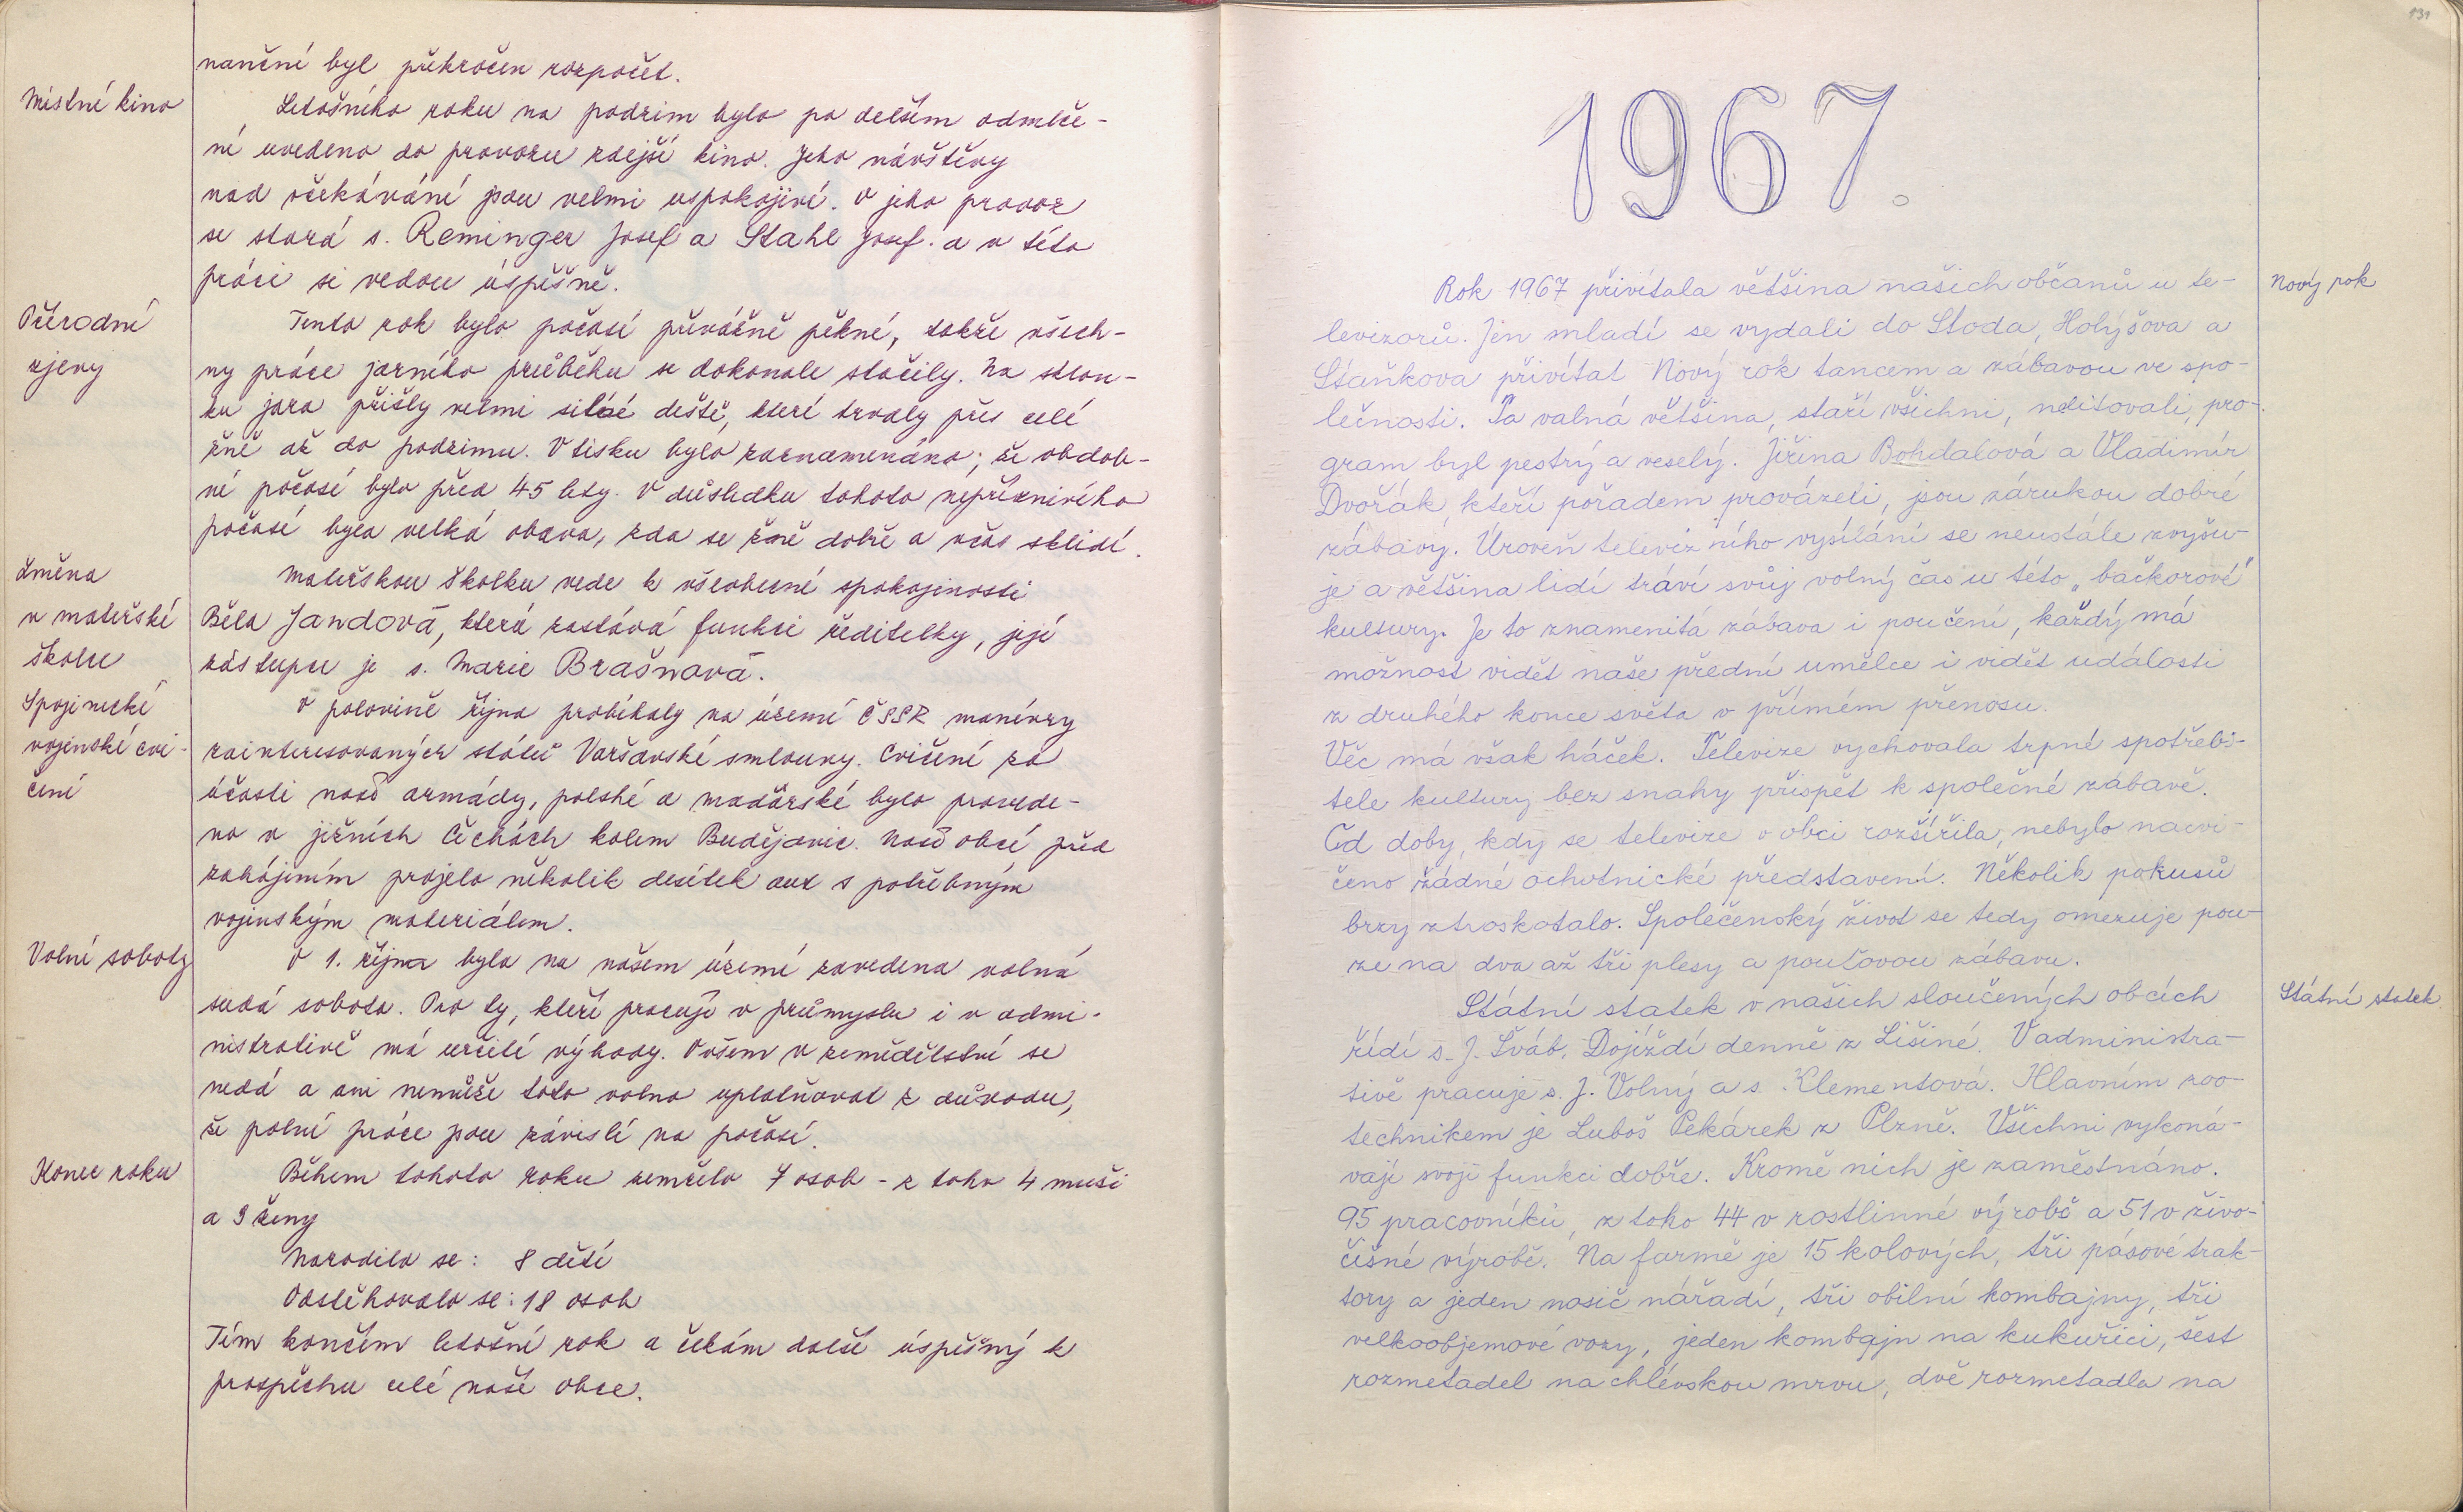 nanční byl překročen rozpočet.
Místní kino
Letošního roku na podzim bylo po delším odmlče-
ní uvedeno do provozu zdejší kino. Jeho návštěvy
nad očekávání jsou velmi uspokojivé. O jeho provoz
se stará s. Reminger Josef a Stahl Josef. a v této
práci si vedou úspěšně.
Přírodní
zjevy
Tento rok bylo počasí převážně pěkné, takže všech-
ny práce jarního průběhu se dokonale stačily. Na sklon-
ku jara přišly velmi silné deště, které trvaly přes celé
žně až do podzimu. V tisku bylo zaznamenáno; že obdob-
né počasí bylo před 45 lety. V důsledku tohoto nepříznivého
počasí byla velká obava, zda se žně dobře a včas sklidí.
Změna
v mateřské
školce
Mateřskou školku vede k všeobecné spokojenosti
Běla Jandová, která zastává funkci ředitelky, její
zástupce je s. Marie Brašnová.
Spojenecké
vojenské cvi-
čení
V polovině října probíhaly na území ČSSR manévry
zainteresovaných států Varšavské smlouvy. Cvičení za
účasti naší armády, polské a maďarské bylo provede-
no v jižních Čechách kolem Budějovic. Naší obcí před
zahájením projelo několik desítek aut s potřebným
vojenským materiálem.
Volné soboty
V 1. října byla na našem území zavedena volná
sudá sobota. Pro ty, kteří pracují v průmyslu i v admi-
nistrativě má určité výhody. Ovšem v zemědělství se
nedá a ani nemůže toto volno uplatňovat z důvodu,
že polní práce jsou závislé na počasí.
Konec roku
Během tohoto roku zemřelo 7 osob - z toho 4 muži
a 3 ženy
Narodilo se: 8 dětí
Odstěhovalo se: 18 osob
Tím končím letošní rok a čekám další úspěšný k
prospěchu celé naší obce.
131
1967.
Nový rok
Rok 1967 přivítala většina našich občanů u te-
levizorů. Jen mladí se vydali do Stoda, Holýšova a
Staňkova přivítat Nový rok tancem a zábavou ve spo-
lečnosti. Ta valná většina, staří všichni, nelitovali, pro-
gram byl pestrý a veselý. Jiřina Bohdalová a Vladimír
Dvořák, kteří pořadem provázeli, jsou zárukou dobré
zábavy. Úroveň televizního vysílání se neustále zvyšu-
je a většina lidí tráví svůj volný čas u této „bačkorové"
kultury. Je to znamenitá zábava i poučení, každý má
možnost vidět naše přední umělce i vidět události
z druhého konce světa v přímém přenosu.
Věc má však háček. Televize vychovala trpné spotřebi-
tele kultury bez snahy přispět k společné zábavě.
Od doby, kdy se televize v obci rozšířila, nebylo nacvi-
čeno žádné ochotnické představení. Několik pokusů
brzy ztroskotalo. Společenský život se tedy omezuje pou-
ze na dva až tři plesy a pouťovou zábavu.
Státní statek
Státní statek v našich sloučených obcích
řídí s. J. Šváb. Dojíždí denně z Lišiné. V administra-
tivě pracuje s. J. Volný a s. Klementová. Hlavním zoo-
technikem je Luboš Pekárek z Plzně. Všichni vykoná-
vají svoji funkci dobře. Kromě nich je zaměstnáno.
95 pracovníků, z toho 44 v rostlinné výrobě a 51 v živo-
čišné výrobě. Na farmě je 15 kolových, tři pásové trak-
tory a jeden nosič nářadí, tři obilní kombajny, tři
velkoobjemové vozy, jeden kombajn na kukuřici, šest
rozmetadel na chlévskou mrvu, dvě rozmetadla na